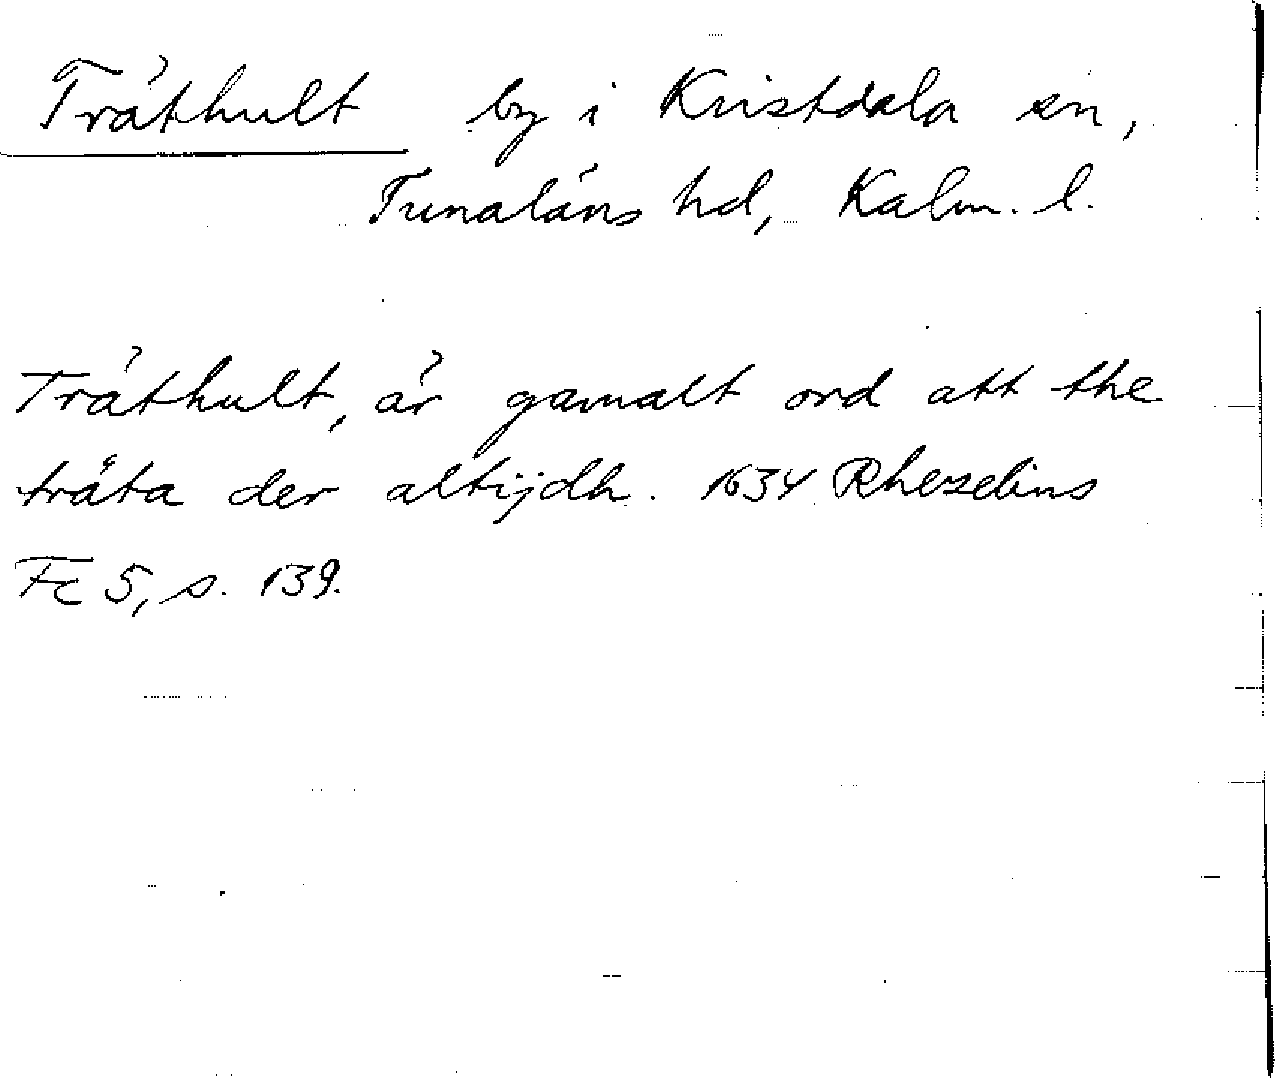 Träthult by i Kristdala sn,
Tunaläns hd, Kalm. l.
Träthult, är gamalt ord att the
träta der altijdh. 1634 Rhezelius
Fc 5, s. 139.